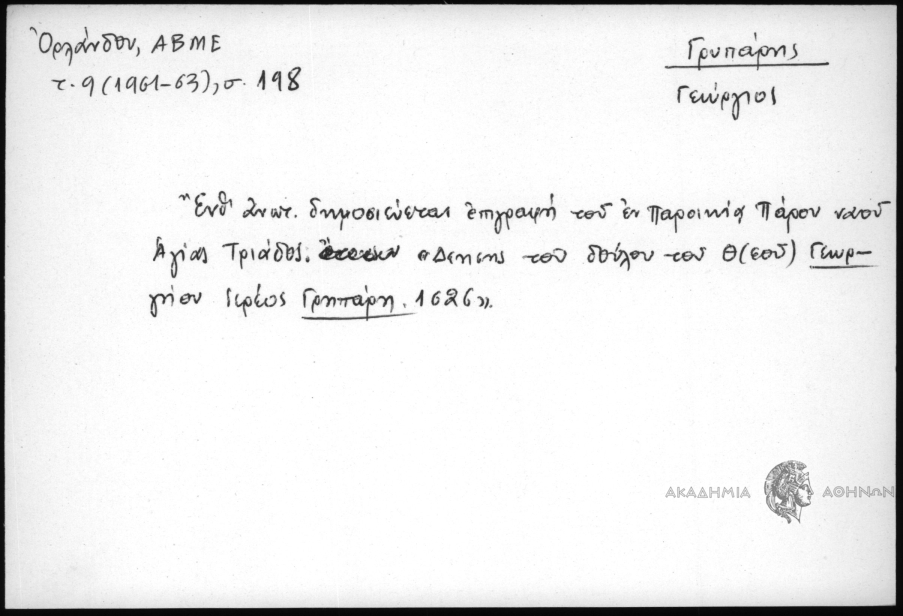 Ὀρλάνδου, ΑΒΜΕ
τ. 9 (1961-63), σ. 198
Γρυπάρης
Γεώργιος
Ἔνθ' ἀνωτ. δημοσιεύεται ἐπιγραφή τοῦ ἐν Παροικιᾳ Πάρου ναοῦ
Ἁγίας Τριάδος. «Δεησης τοῦ δούλου του Θ(εοῦ) Γεωρ-
γήου ἱερέος Γρηπάρη. 1626».
ΑΚΑΔΗΜΙΑ ΑΘΗΝΩΝ